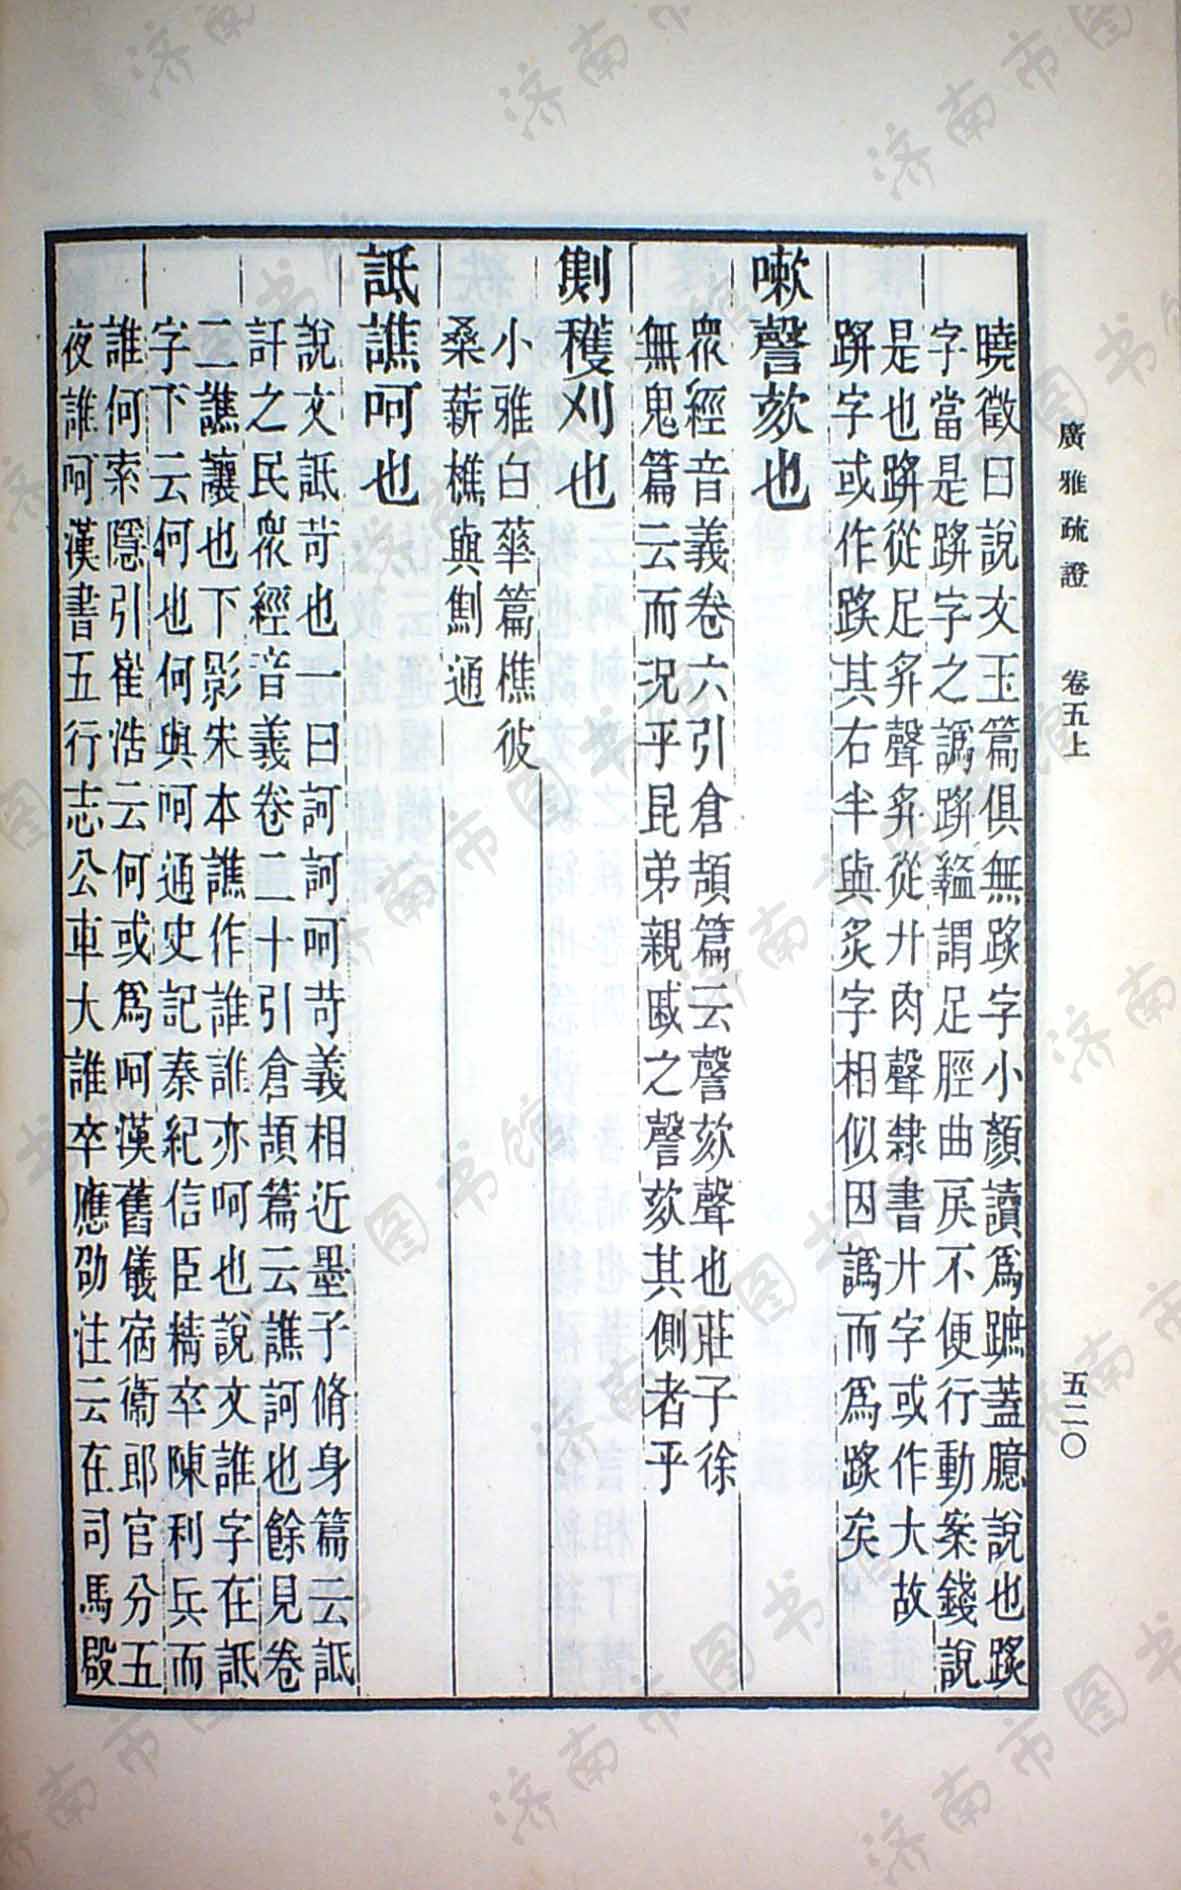 廣雅疏證　卷五上　五二〇
曉徵曰說文玉篇俱無䠕字小顏讀爲蹠蓋臆說也䠕
字當是𨂲字之譌𨂲盭謂足脛曲戾不便行動案錢說
是也𨂲從足𢍏聲𢍏從廾肉聲隸書廾字或作大故
𨂲字或作䠕其右半與炙字相似因譌而爲䠕矣
嗽謦欬也
衆經音義卷六引倉頡篇云謦欬聲也莊子徐
無鬼篇云而況乎昆弟親戚之謦欬其側者乎
劁穫刈也
小雅白華篇樵彼
桑薪樵與劁通
詆譙呵也
說文詆苛也一曰訶訶呵苛義相近墨子脩身篇云詆
訐之民衆經音義卷二十引倉頡篇云譙訶也餘見卷
二譙讓也下影宋本譙作誰誰亦呵也說文誰字在詆
字下云何也何與呵通史記秦紀信臣精卒陳利兵而
誰何索隱引崔浩云何或爲呵漢舊儀宿衞郎官分五
夜誰呵漢書五行志公車大誰卒應劭注云在司馬殿
济南市图书馆